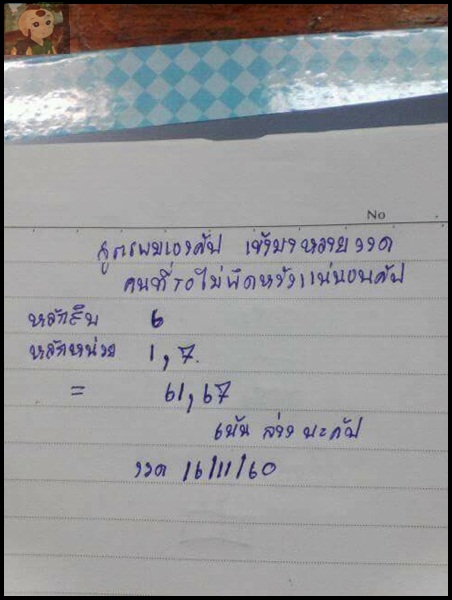 No
สูตรผมเองคับ เข้ามาหลายงวด
คนที่รอไม่ผิดหวังแน่นอนคับ
หลักสิบ 6
หลักหน่วย 1,7.
= 61,67
เน้น ล่าง นะคับ
งวด 16/11/60